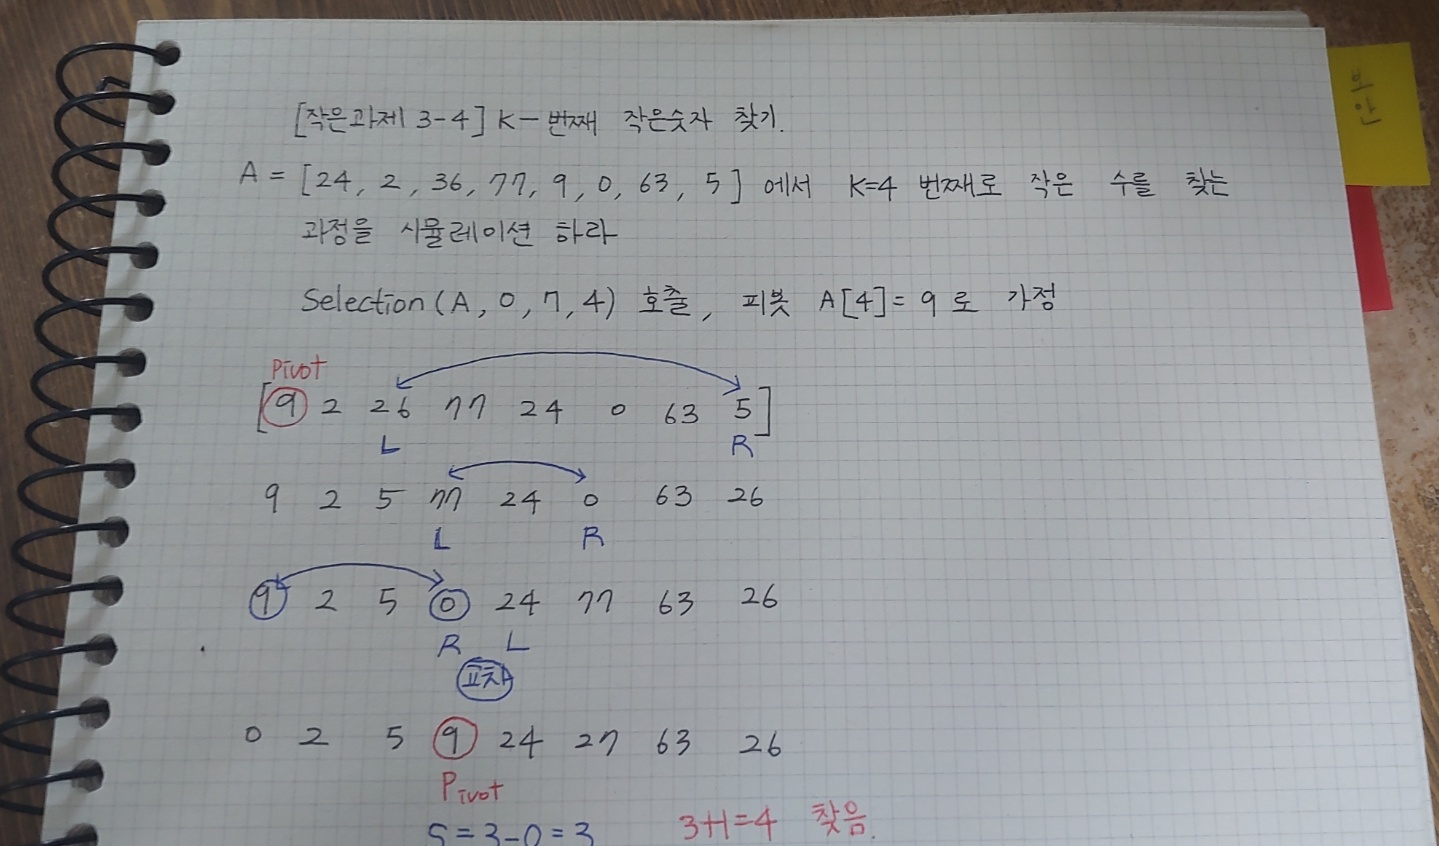 [작은과제 3-4] K-번째 작은숫자 찾기.
A = [24, 2, 36, 77, 9, 0, 63, 5] 에서 K=4 번째로 작은 수를 찾는
과정을 시뮬레이션 하라
Selection(A, 0, 7, 4) 호출, 피봇 A[4]= 9 로 가정
Pivot
[9 2 26 77 24 0 63 5]
L R
9 2 5 77 24 0 63 26
L R
9 2 5 0 24 77 63 26
R L
교차
0 2 5 9 24 27 63 26
Pivot
S = 3-0 = 3 3+1=4 찾음.
보안